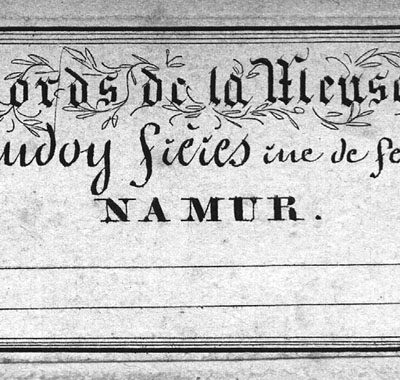 ords de la Meuse
udoy frères rue de fe
NAMUR.